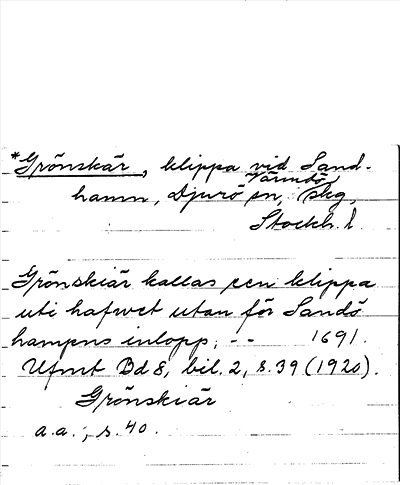 *Grönskär, klippa vid Sand-
hamn, Djurö sn, Värmdö skg,
Stockh. l.
Grönskiär kallas een klippa
uti hafwet utan för Sandö
hampns inlopp; -- 1691.
Ufmt Bd 8, bil. 2, s. 39 (1920).
Grönskiär
a.a., s. 40.